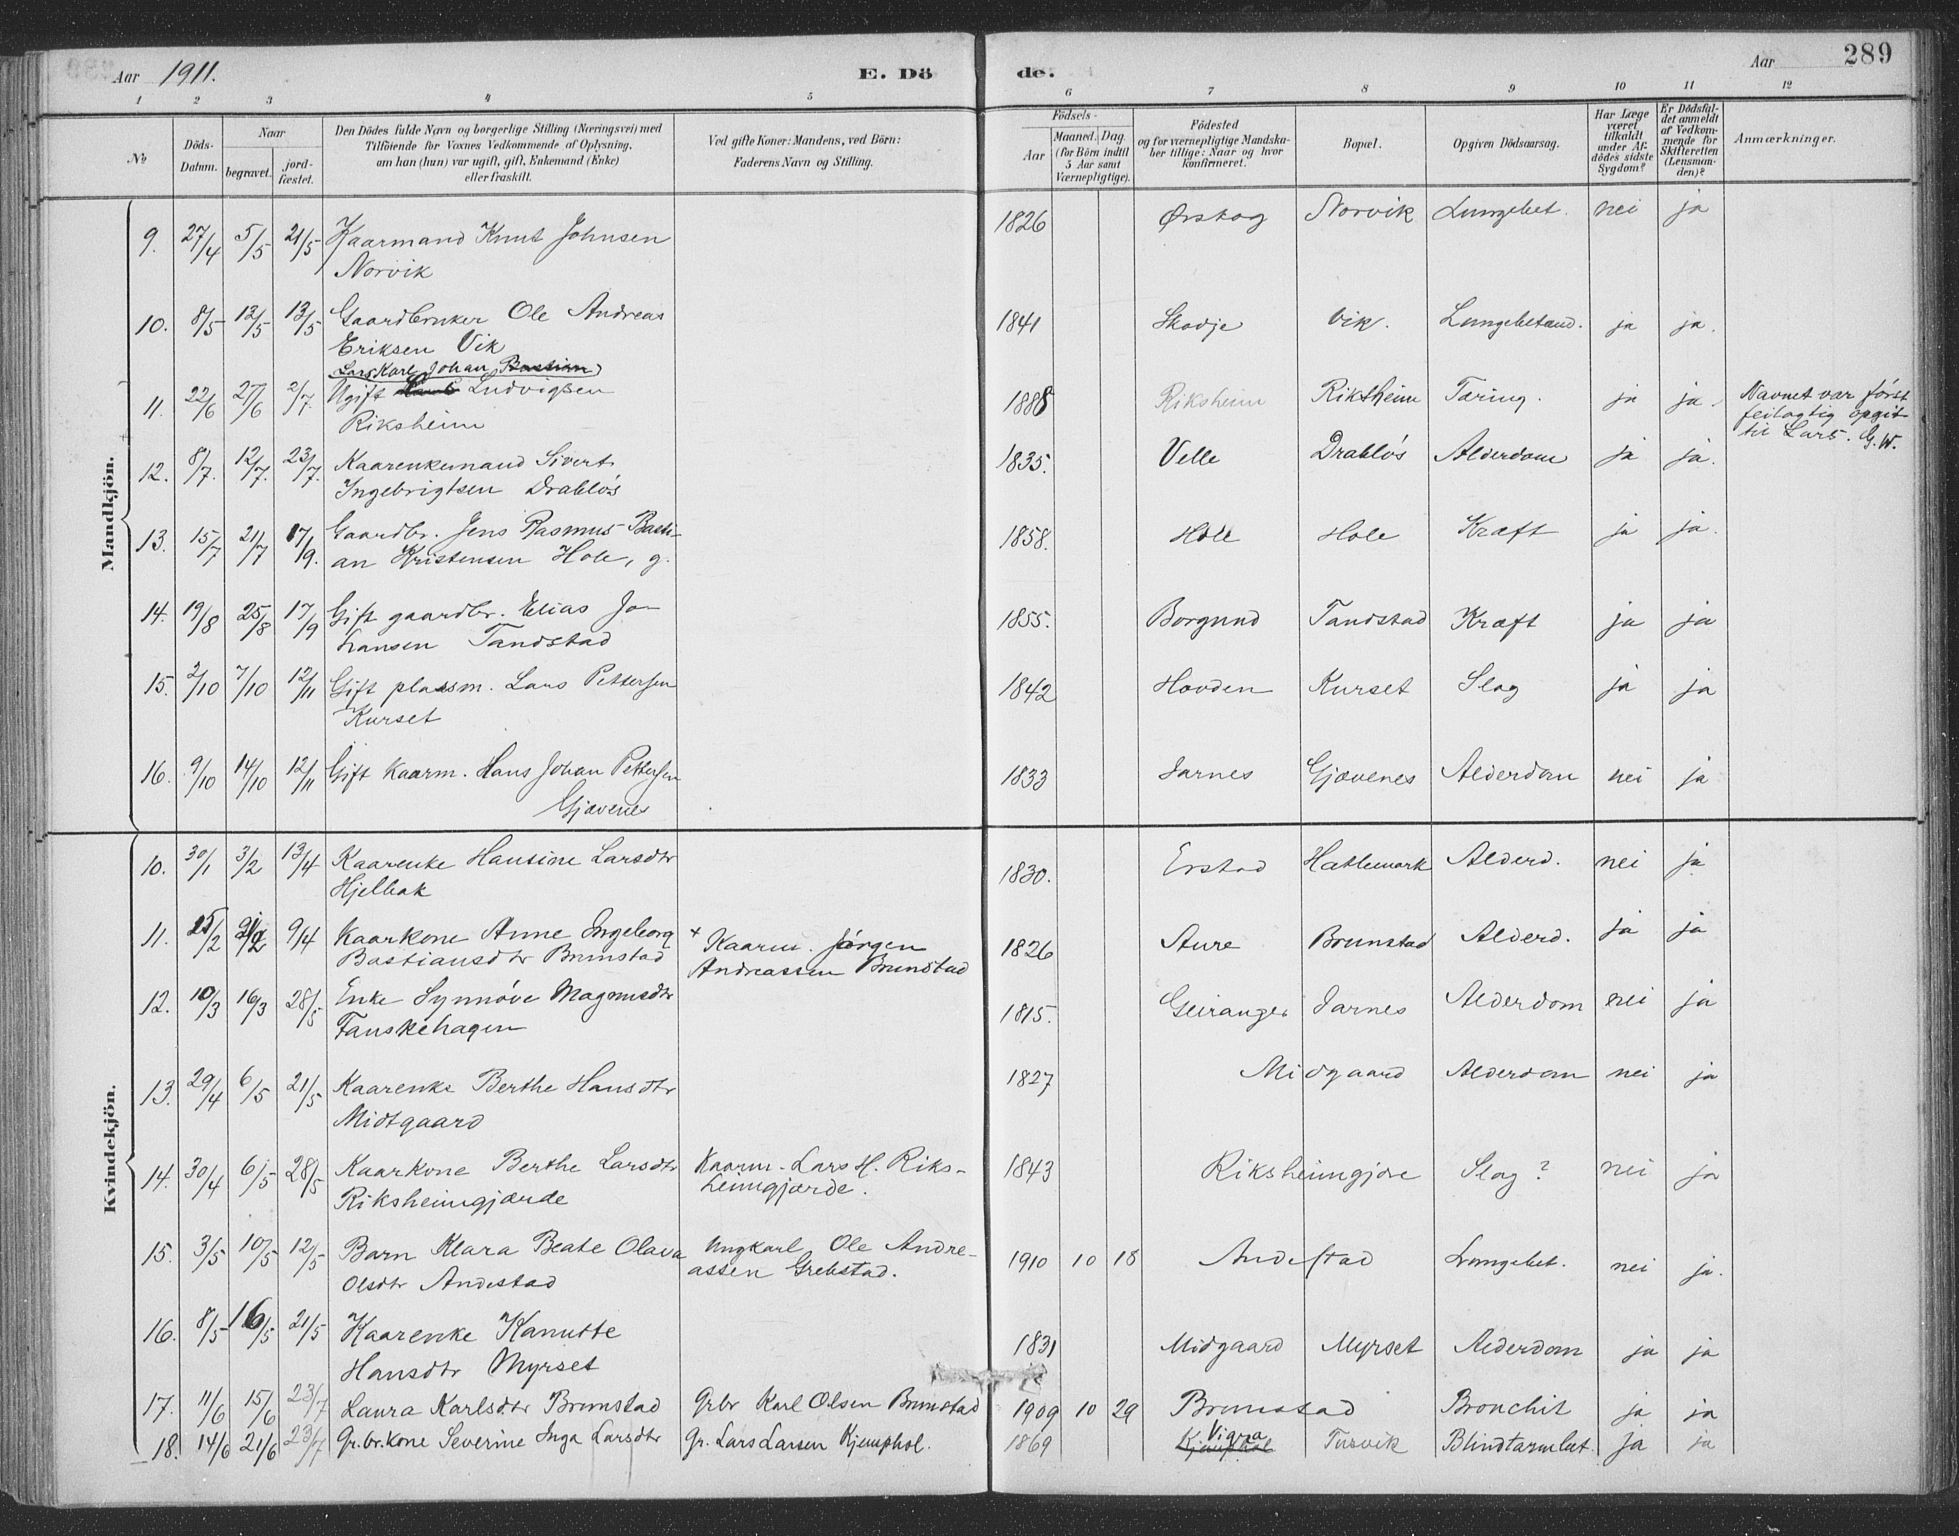 Aar 1911. E. Döde. Aar 289
1 2 3 4 5 6 7 8 9 10 11 12
No
Döds-Datum.
Naar begravet. jordfæstet.
Den Dödes fulde Navn og borgerlige Stilling (Næringsvei) med
Tilföiende for Voxnes Vedkommende af Oplysning,
om han (hun) var ugift, gift, Enkemand (Enke)
eller fraskilt.
Ved gifte Koner: Mandens, ved Börn:
Faderens Navn og Stilling.
Födsels-
Aar Maaned. Dag.
(for Börn indtil
5 Aar samt
Værnepligtige).
Födested
og for værnepligtige Mandskaber tillige: Naar og hvor
konfirmeret.
Bopæl.
Opgiven Dödsaarsag.
Har Læge
været
tilkaldt
under Afdödes sidste
Sygdom?
Er Dödsfaldet anmeldt
af Vedkommende for
Skifteretten
(Lensmanden)?
Anmærkninger.
Mandkjön.
9. 27/4 5/5 21/5 Kaarmand Knut Johnsen 1826 Ørskog Norvik Lungebet. nei ja
Norvik
10. 8/5 13/5 13/5 Gaardbruker Ole Andreas 1841 Skodje Vik. Lungebetænd. ja ja.
Eriksen Vik
Lars Karl Johan Bastian
11. 22/6 27/6 2/7. Ugift Ludvigsen 1888 Riksheim Riksheim Tæring. ja ja. Navnet var först
Riksheim feilagtig opgit
til Lars. G.W.
12. 8/7. 12/7. 23/7. Kaarenkemand Sivert 1835. Velle Drabløs Alderdom ja ja.
Ingebrigtsen Drabløs
13. 15/7 21/7 17/9. Gaardbr. Jens Rasmus Basti- 1858. Hole Hole Kræft ja ja.
an Kristensen Hole, g.
14. 19/8 25/8 17/9 Gift gaardbr. Elias Jo 1855. Borgund Tandstad Kræft ja ja
hansen Tandstad
15. 2/10 7/10 12/11 Gift plassm. Lars Pettersen 1842 Hovden Kurset Slag ja ja
Kurset
16. 9/10 14/10 12/11 Gift Kaarm. Hans Johan Pettersen 1833 Jarnes Gjævenes Alderdom nei ja
Gjævenes
Kvindekjön.
10. 30/1 3/2 13/4 Kaarenke Hansine Larsdtr 1830. Erstad Hatlemark Alderd. nei ja
Hjelbak
11. 15/2 21/2 9/4 Kaarkone Anne Ingeborg + Kaarm. Jørgen 1826 Aure Brunstad Alderd. ja ja
Bastiansdtr Brunstad Andreassen Brunstad
12. 10/3 16/3 28/5 Enke Synnøve Magnusdtr 1815. Geiranger Jarnes Alderdom nei ja
Fauskehagen
13. 29/4 6/5 21/5 Kaarenke Berthe Hansdtr 1827 Midgaard Alderdom nei ja
Midtgaard
14. 30/4 6/5 28/5 Kaarkone Berthe Larsdtr Kaarm. Lars H. Riks- 1843 Riksheimgjøre Slag? nei ja
Riksheimgjærde heimgjærde.
15. 3/5 10/5 12/5 Barn Klara Beate Olava Ungkarl Ole Andre- 1910 10 18 Andestad Lungebet. nei ja.
Olsdtr Andestad assen Grebstad.
16. 8/5 16/5 21/5 Kaarenke Kanutte 1831 Midgaard Myrset Alderdom ja ja
Hansdtr Myrset
17. 11/6 15/6 23/7 Laura Karlsdtr Brunstad Grbr Karl Olsen Brunstad 1909 10 29 Brunstad Bronchit ja ja
18. 14/6 21/6 23/7 Gr.br.kone Severine Inga Larsdtr Gr. Lars Larsen Kjemphol. 1869 Kjemphol Vigra Tusvik Blindtarmbet. Ja ja